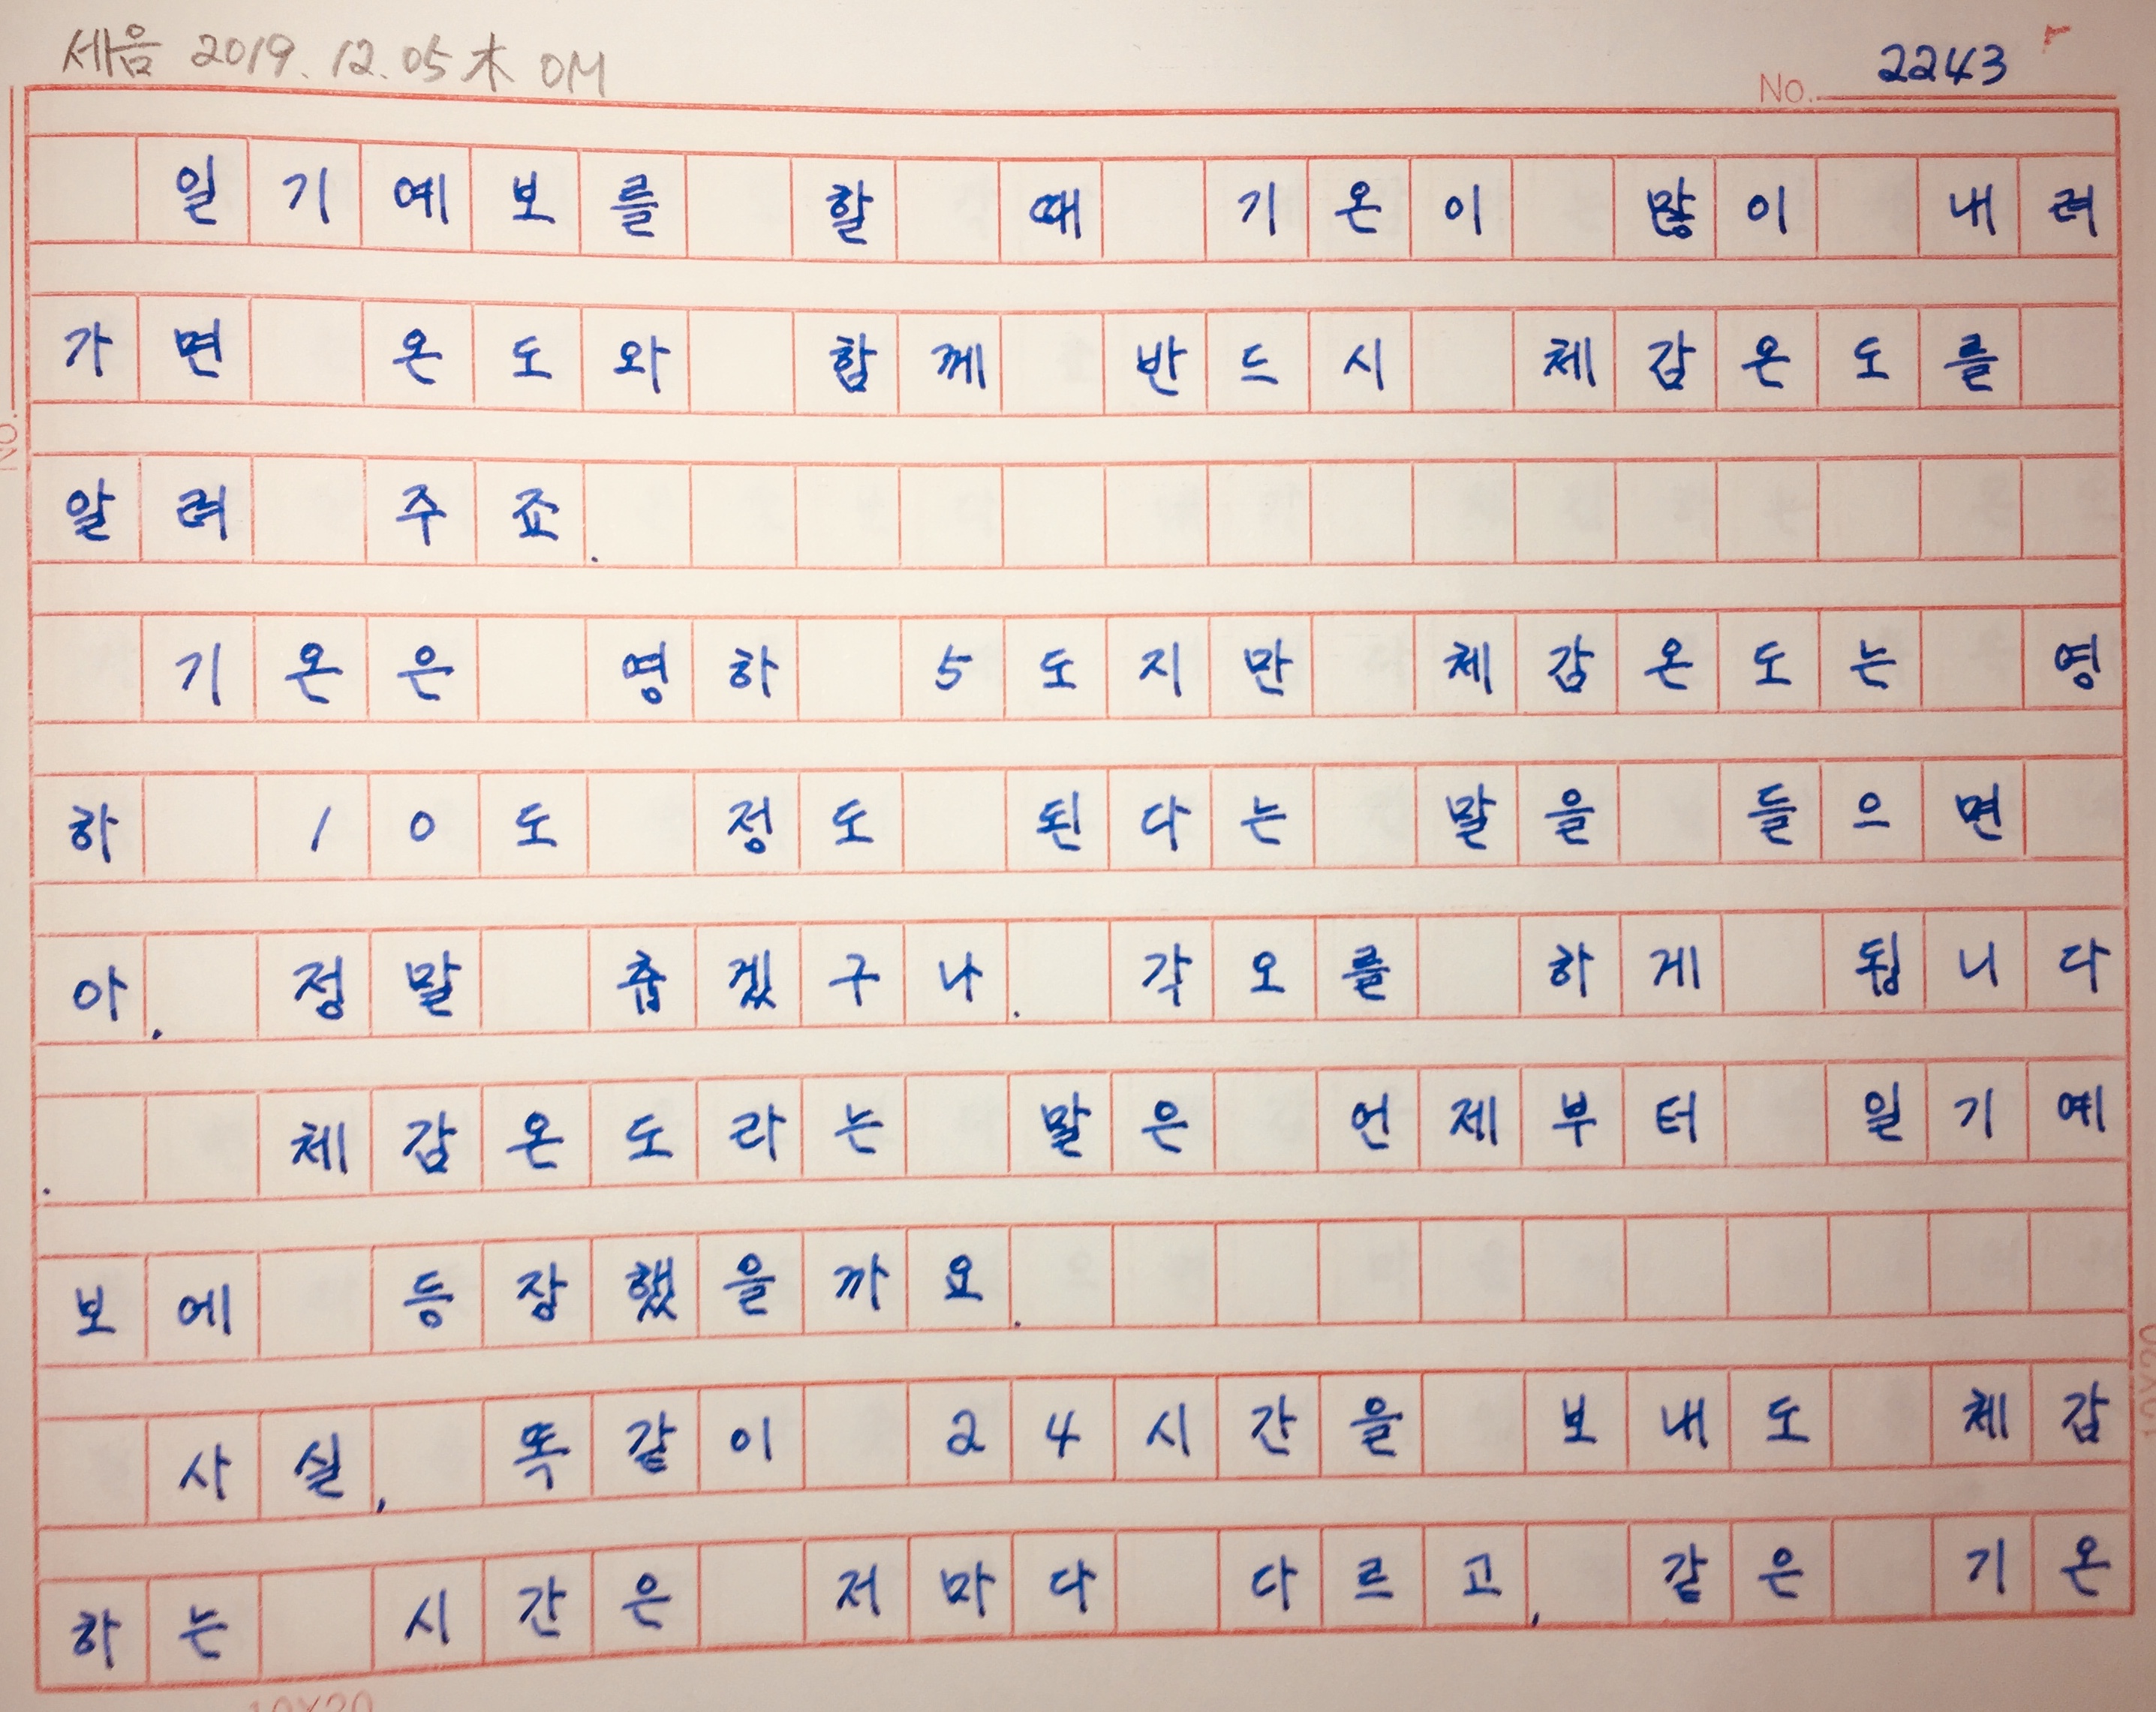 세음 2019. 12. 05 木 OM
No. 2243
일기예보를 할 때 기온이 많이 내려
가면 온도와 함께 반드시 체감온도를
알려 주죠.
기온은 영하 5도지만 체감온도는 영
하 10도 정도 된다는 말을 들으면
아. 정말 춥겠구나. 각오를 하게 됩니다
. 체감온도라는 말은 언제부터 일기예
보에 등장했을까요.
사실, 똑같이 24시간을 보내도 체감
하는 시간은 저마다 다르고, 같은 기온
No.
10X20
10X20